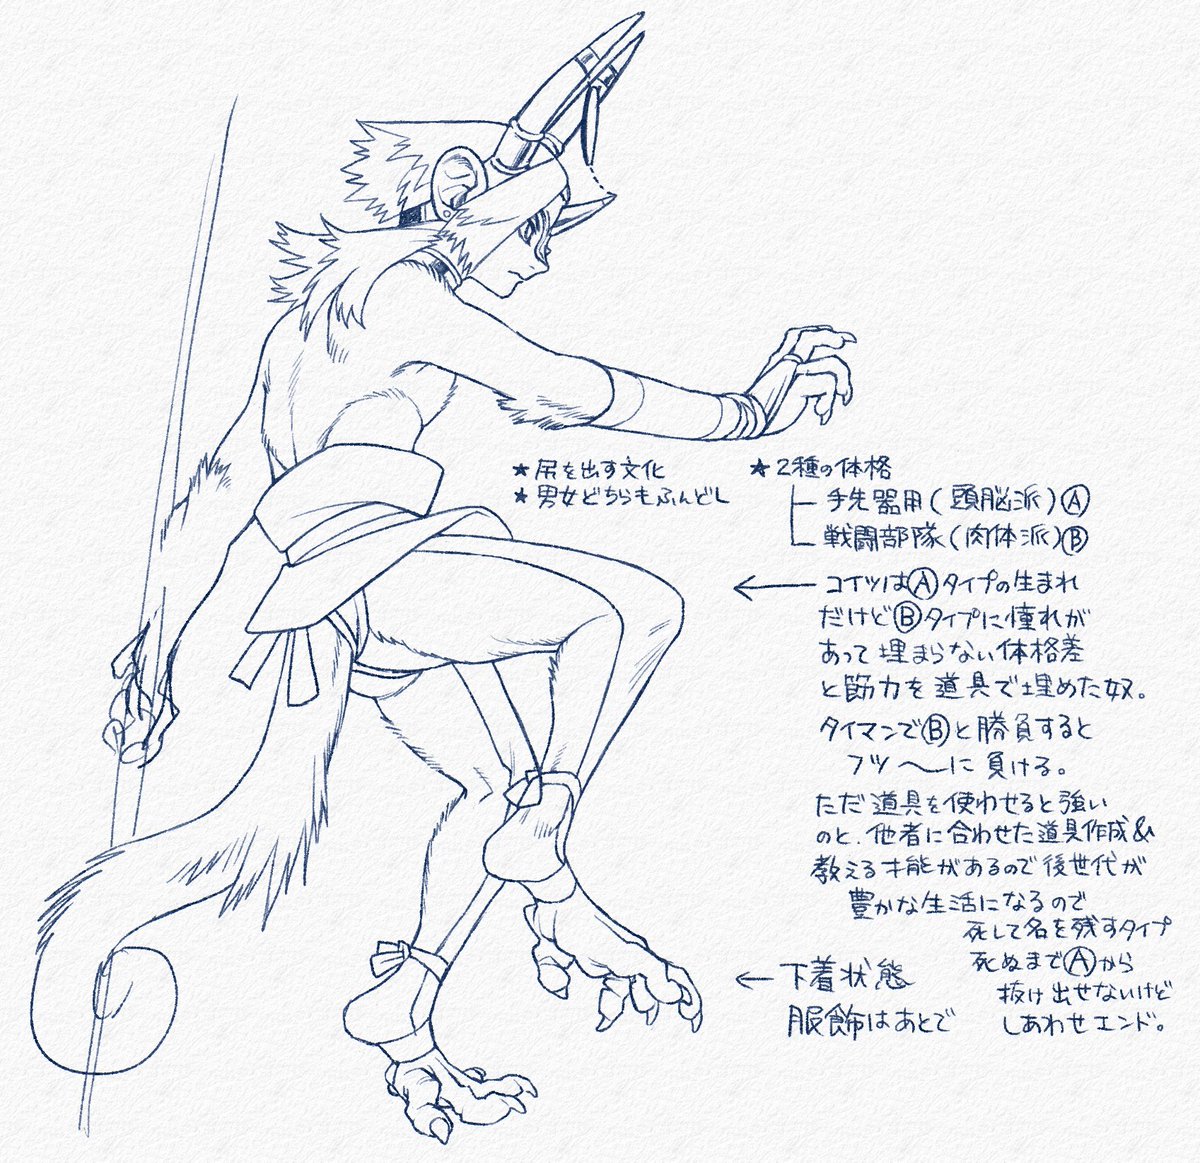 ★尻を出す文化
★男女どちらもふんどし
★2種の体格
手先器用(頭脳派)Ⓐ
戦闘部隊(肉体派)Ⓑ
← コイツはⒶタイプの生まれ
だけどⒷタイプに憧れが
あって埋まらない体格差
と筋力を道具で埋めた奴。
タイマンでⒷと勝負すると
フツ〜に負ける。
ただ道具を使わせると強い
のと、他者に合わせた道具作成&
教える才能があるので後世代が
豊かな生活になるので
死して名を残すタイプ
死ぬまでⒶから
抜け出せないけど
しあわせエンド。
← 下着状態
服飾はあとで